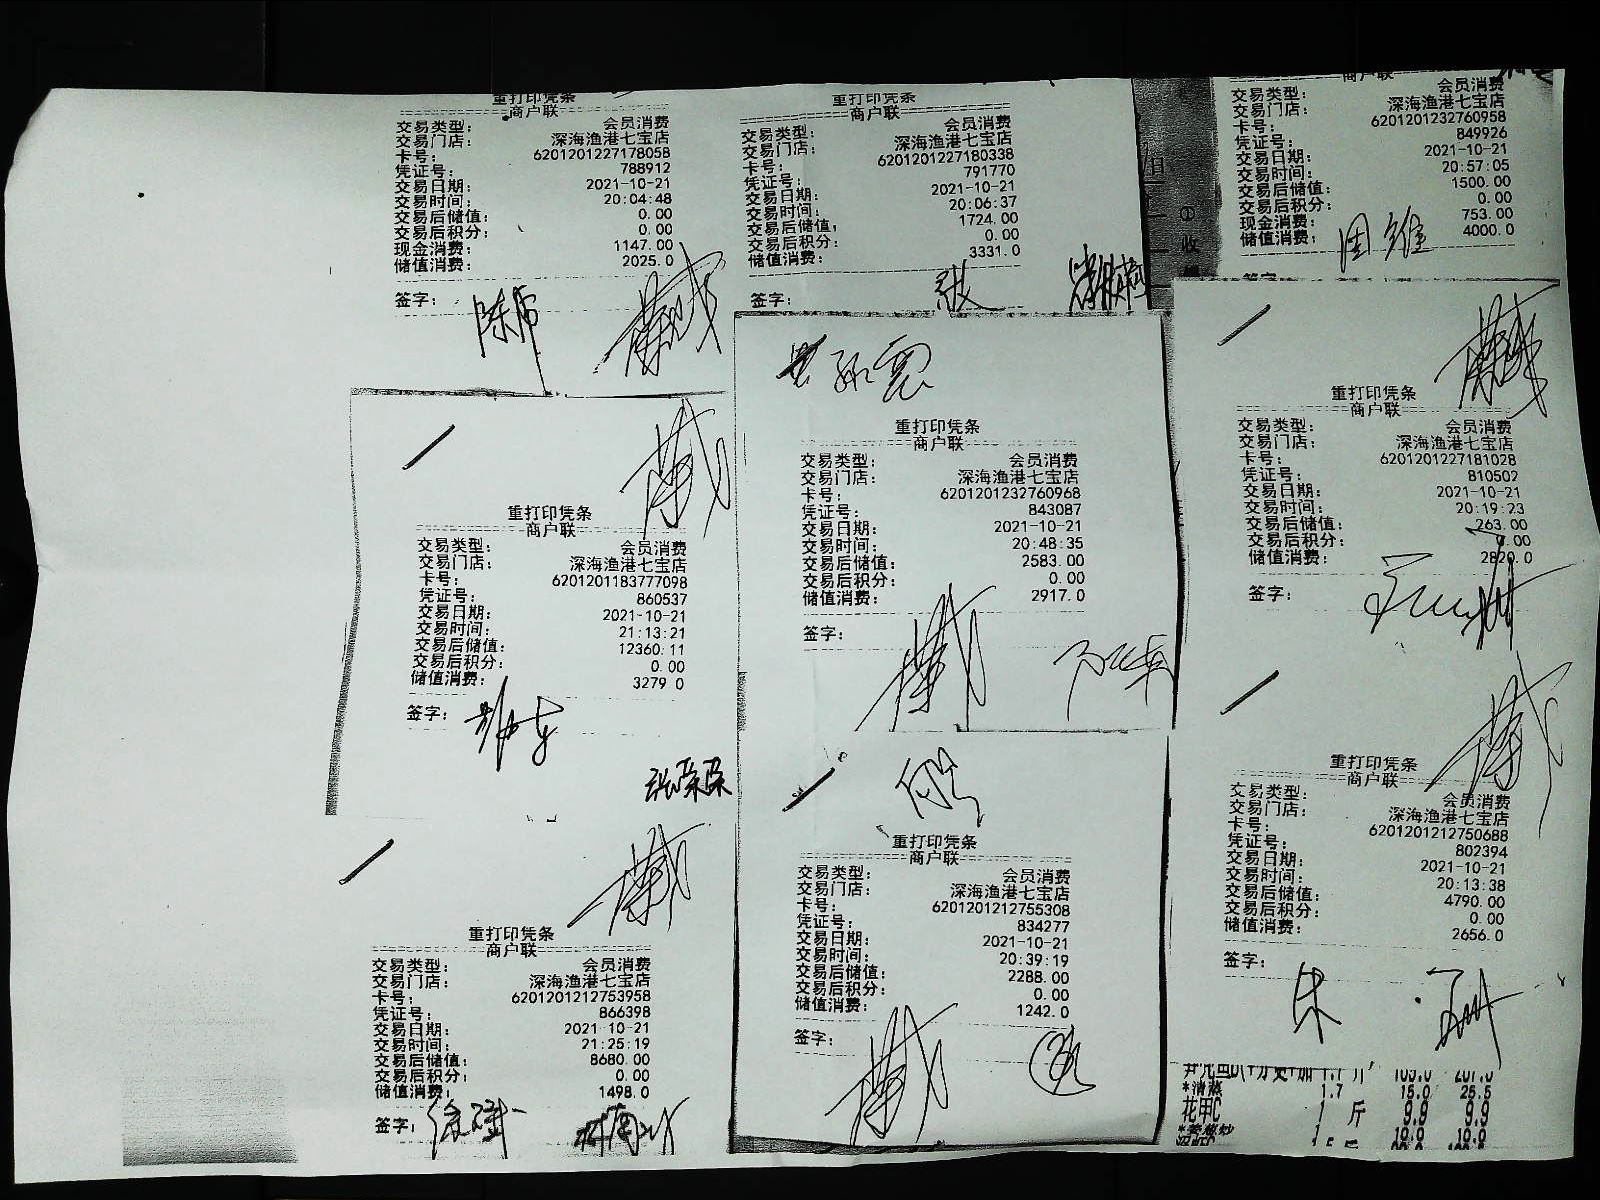 重打印凭条
商户联
交易类型： 会员消费
交易门店： 深海渔港七宝店
卡号： 6201201227178058
凭证号： 788912
交易日期： 2021-10-21
交易时间： 20:04:48
交易后储值： 0.00
交易后积分： 0.00
现金消费： 1147.00
储值消费： 2025.0
签字：
重打印凭条
商户联
交易类型： 会员消费
交易门店： 深海渔港七宝店
卡号： 6201201227180338
凭证号： 791770
交易日期： 2021-10-21
交易时间： 20:06:37
交易后储值： 1724.00
交易后积分： 0.00
储值消费： 3331.0
签字：
商户联
交易类型： 会员消费
交易门店： 深海渔港七宝店
卡号： 6201201232760958
凭证号： 849926
交易日期： 2021-10-21
交易时间： 20:57:05
交易后储值： 1500.00
交易后积分： 0.00
现金消费： 753.00
储值消费： 4000.0
周维
重打印凭条
商户联
交易类型： 会员消费
交易门店： 深海渔港七宝店
卡号： 6201201183777098
凭证号： 860537
交易日期： 2021-10-21
交易时间： 21:13:21
交易后储值： 12360.11
交易后积分： 0.00
储值消费： 3279 0
签字：
重打印凭条
商户联
交易类型： 会员消费
交易门店： 深海渔港七宝店
卡号： 6201201232760968
凭证号： 843087
交易日期： 2021-10-21
交易时间： 20:48:35
交易后储值： 2583.00
交易后积分： 0.00
储值消费： 2917.0
签字：
重打印凭条
商户联
交易类型： 会员消费
交易门店： 深海渔港七宝店
卡号： 6201201227181028
凭证号： 810502
交易日期： 2021-10-21
交易时间： 20:19:23
交易后储值： 263.00
交易后积分： 0.00
储值消费： 2820.0
签字：
重打印凭条
商户联
交易类型： 会员消费
交易门店： 深海渔港七宝店
卡号： 6201201212753958
凭证号： 866398
交易日期： 2021-10-21
交易时间： 21:25:19
交易后储值： 8680.00
交易后积分： 0.00
储值消费： 1498.0
签字：
重打印凭条
商户联
交易类型： 会员消费
交易门店： 深海渔港七宝店
卡号： 6201201212755308
凭证号： 834277
交易日期： 2021-10-21
交易时间： 20:39:19
交易后储值： 2288.00
交易后积分： 0.00
储值消费： 1242.0
签字：
重打印凭条
商户联
交易类型： 会员消费
交易门店： 深海渔港七宝店
卡号： 6201201212750688
凭证号： 802394
交易日期： 2021-10-21
交易时间： 20:13:38
交易后储值： 4790.00
交易后积分： 0.00
储值消费： 2656.0
签字：
朱
*清蒸 1.7 15.0 25.5
花甲C 1 斤 9.9 9.9